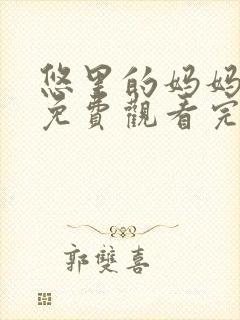 悠里的妈妈
免費觀看完
郭雙喜